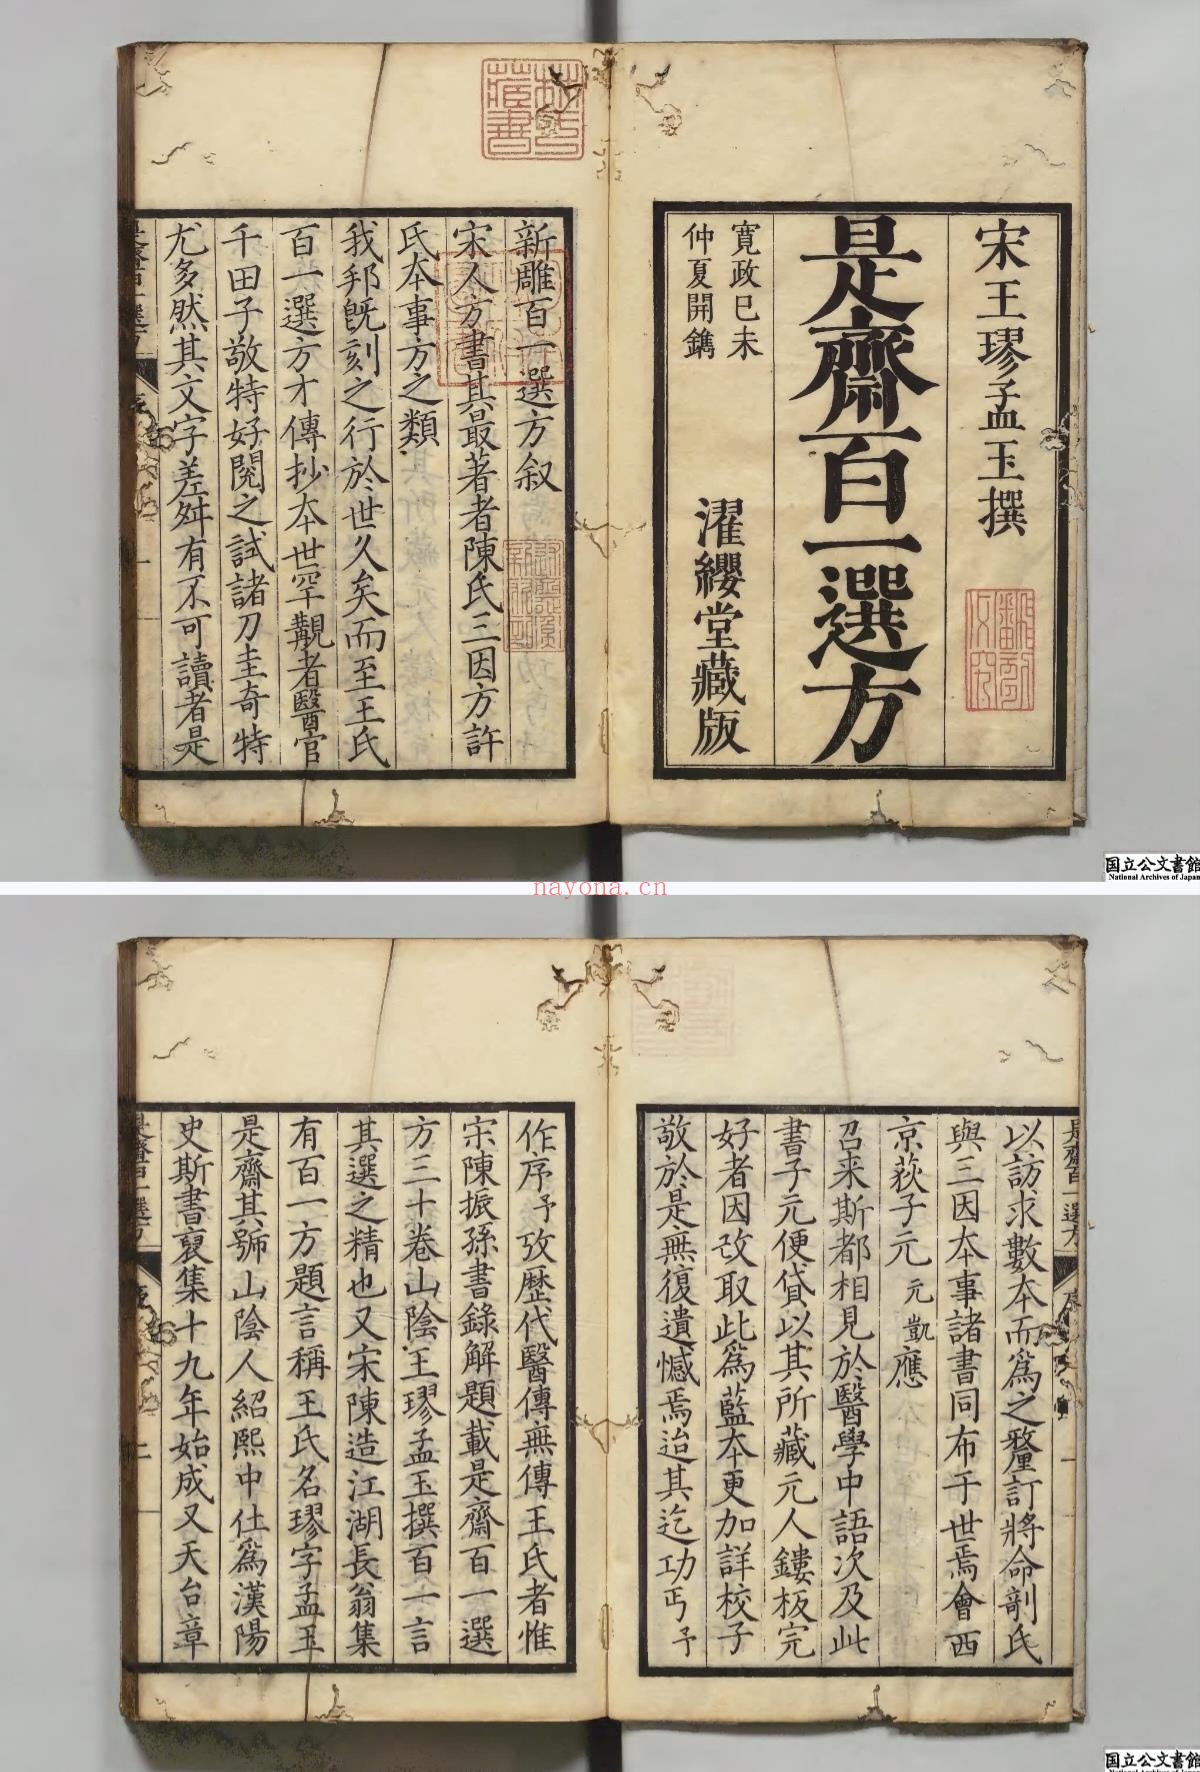 宋王璆孟玉撰
是齋百一選方
寛政已未
仲夏開鐫
濯纓堂藏版
新雕百一選方叙
宋人方書其最著者陳氏三因方許
氏本事方之類
我邦旣刻之行於世久矣而至王氏
百一選方才傳抄本世罕覯者醫官
千田子敬特好閱之試諸刀圭奇特
尤多然其文字差舛有不可讀者是
國立公文書館
National Archives of Japan
nayona.cn
是齋百一選方
以訪求數本而爲之釐訂將命剞氏
與三因本事諸書同布于世焉會西
京荻子元元凱應
召来斯都相見於醫學中語次及此
書子元便貸以其所藏元人鏤板完
好者因改取此爲藍本更加詳校子
敬於是無復遺憾焉迨其迄功丐予
作序予攷歷代醫傳無傳王氏者惟
宋陳振孫書錄解題載是齋百一選
方三十卷山陰王璆孟玉撰百一言
其選之精也又宋陳造江湖長翁集
有百一方題言稱王氏名璆字孟玉
是齋其號山陰人紹熙中仕爲漢陽
史斯書裒集十九年始成又天台章
国立公文書館
National Archives of Japan